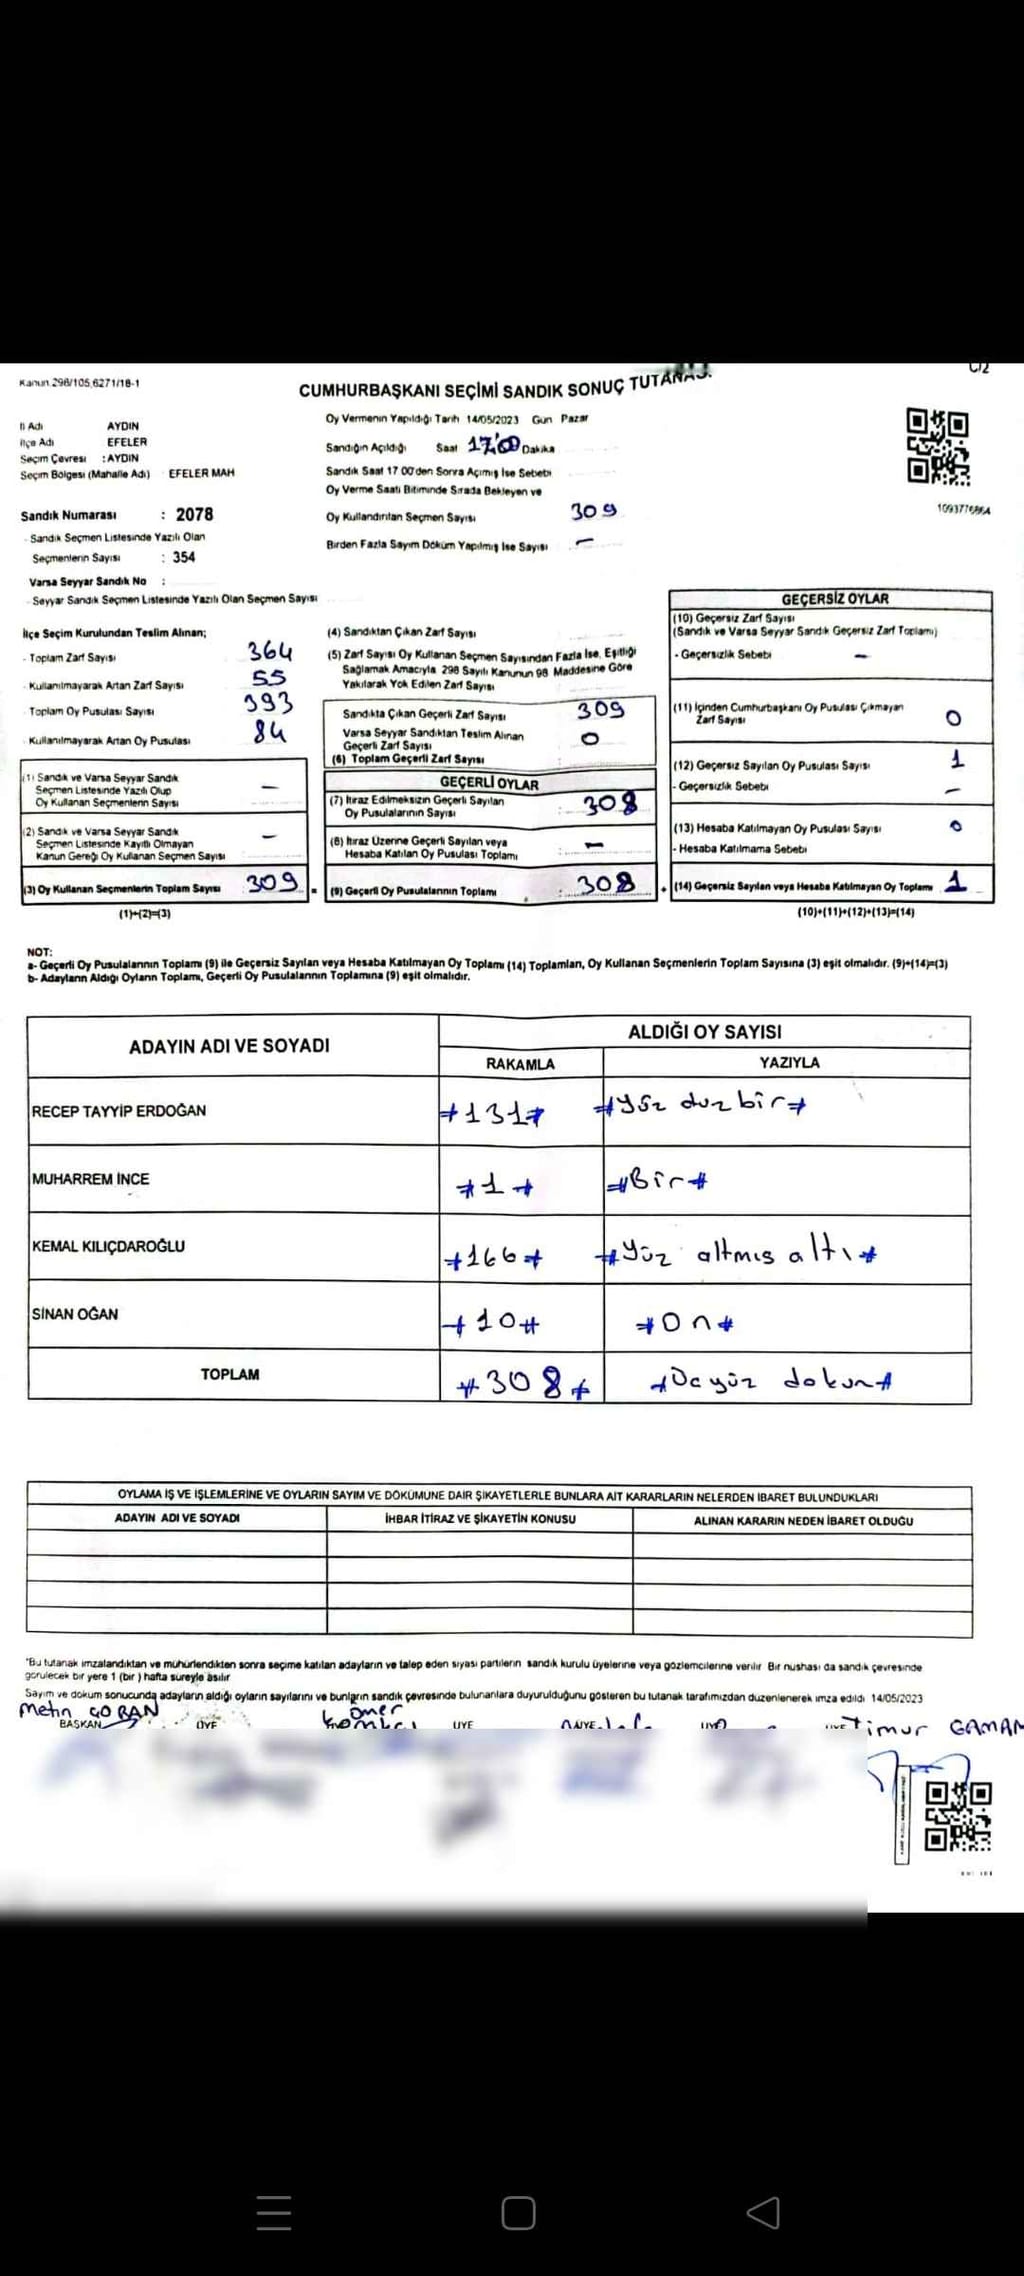 Kanun 298/105,6271/18-1
C/2
CUMHURBAŞKANI SEÇİMİ SANDIK SONUÇ TUTANAĞI
İl Adı AYDIN
İlçe Adı EFELER
Seçim Çevresi : AYDIN
Seçim Bölgesi (Mahalle Adı) EFELER MAH
Oy Vermenin Yapıldığı Tarih 14/05/2023 Gun Pazar
Sandığın Açıldığı Saat 17:00 Dakika
Sandık Saat 17 00'den Sonra Açılmış İse Sebebi
Oy Verme Saati Bitiminde Sırada Bekleyen ve
Oy Kullandırılan Seçmen Sayısı 309
Birden Fazla Sayım Döküm Yapılmış İse Sayısı –
1093776864
Sandık Numarası : 2078
- Sandık Seçmen Listesinde Yazılı Olan
Seçmenlerin Sayısı : 354
Varsa Seyyar Sandık No :
- Seyyar Sandık Seçmen Listesinde Yazılı Olan Seçmen Sayısı
İlçe Seçim Kurulundan Teslim Alınan;
- Toplam Zarf Sayısı 364
- Kullanılmayarak Artan Zarf Sayısı 55
- Toplam Oy Pusulası Sayısı 393
- Kullanılmayarak Artan Oy Pusulası 84
(1) Sandık ve Varsa Seyyar Sandık
Seçmen Listesinde Yazılı Olup
Oy Kullanan Seçmenlerin Sayısı –
(2) Sandık ve Varsa Seyyar Sandık
Seçmen Listesinde Kayıtlı Olmayan
Kanun Gereği Oy Kullanan Seçmen Sayısı –
(3) Oy Kullanan Seçmenlerin Toplam Sayısı 309 =
(1)+(2)=(3)
(4) Sandıktan Çıkan Zarf Sayısı
(5) Zarf Sayısı Oy Kullanan Seçmen Sayısından Fazla İse, Eşitliği
Sağlamak Amacıyla 298 Sayılı Kanunun 98 Maddesine Göre
Yakılarak Yok Edilen Zarf Sayısı
Sandıkta Çıkan Geçerli Zarf Sayısı 309
Varsa Seyyar Sandıktan Teslim Alınan
Geçerli Zarf Sayısı 0
(6) Toplam Geçerli Zarf Sayısı :
GEÇERLİ OYLAR
(7) İtiraz Edilmeksizin Geçerli Sayılan
Oy Pusulalarının Sayısı : 308
(8) İtiraz Üzerine Geçerli Sayılan veya
Hesaba Katılan Oy Pusulası Toplamı : –
(9) Geçerli Oy Pusulalarının Toplamı : 308 +
GEÇERSİZ OYLAR
(10) Geçersiz Zarf Sayısı
(Sandık ve Varsa Seyyar Sandık Geçersiz Zarf Toplamı)
- Geçersizlik Sebebi –
(11) İçinden Cumhurbaşkanı Oy Pusulası Çıkmayan
Zarf Sayısı 0
(12) Geçersiz Sayılan Oy Pusulası Sayısı 1
- Geçersizlik Sebebi –
(13) Hesaba Katılmayan Oy Pusulası Sayısı 0
- Hesaba Katılmama Sebebi
(14) Geçersiz Sayılan veya Hesaba Katılmayan Oy Toplamı 1
(10)+(11)+(12)+(13)=(14)
NOT:
a- Geçerli Oy Pusulalarının Toplamı (9) ile Geçersiz Sayılan veya Hesaba Katılmayan Oy Toplamı (14) Toplamları, Oy Kullanan Seçmenlerin Toplam Sayısına (3) eşit olmalıdır. (9)+(14)=(3)
b- Adayların Aldığı Oyların Toplamı, Geçerli Oy Pusulalarının Toplamına (9) eşit olmalıdır.
ADAYIN ADI VE SOYADI ALDIĞI OY SAYISI
RAKAMLA YAZIYLA
RECEP TAYYİP ERDOĞAN #131# #Yüz duz bir#
MUHARREM İNCE #1# #Bir#
KEMAL KILIÇDAROĞLU #166# #Yüz altmış altı#
SİNAN OĞAN #10# #On#
TOPLAM #308# #Üçyüz dokuz#
OYLAMA İŞ VE İŞLEMLERİNE VE OYLARIN SAYIM VE DÖKÜMÜNE DAİR ŞİKAYETLERLE BUNLARA AİT KARARLARIN NELERDEN İBARET BULUNDUKLARI
ADAYIN ADI VE SOYADI İHBAR İTİRAZ VE ŞİKAYETİN KONUSU ALINAN KARARIN NEDEN İBARET OLDUĞU
"Bu tutanak imzalandıktan ve mühürlendikten sonra seçime katılan adayların ve talep eden siyasi partilerin sandık kurulu üyelerine veya gözlemcilerine verilir Bir nushası da sandık çevresinde
görülecek bir yere 1 (bir) hafta süreyle asılır
Sayım ve dokum sonucunda adayların aldığı oyların sayılarını ve bunların sandık çevresinde bulunanlara duyurulduğunu gösteren bu tutanak tarafımızdan düzenlenerek imza edildi 14/05/2023
Metin ÇOBAN Ömer Timur
BAŞKAN ÜYE UYE